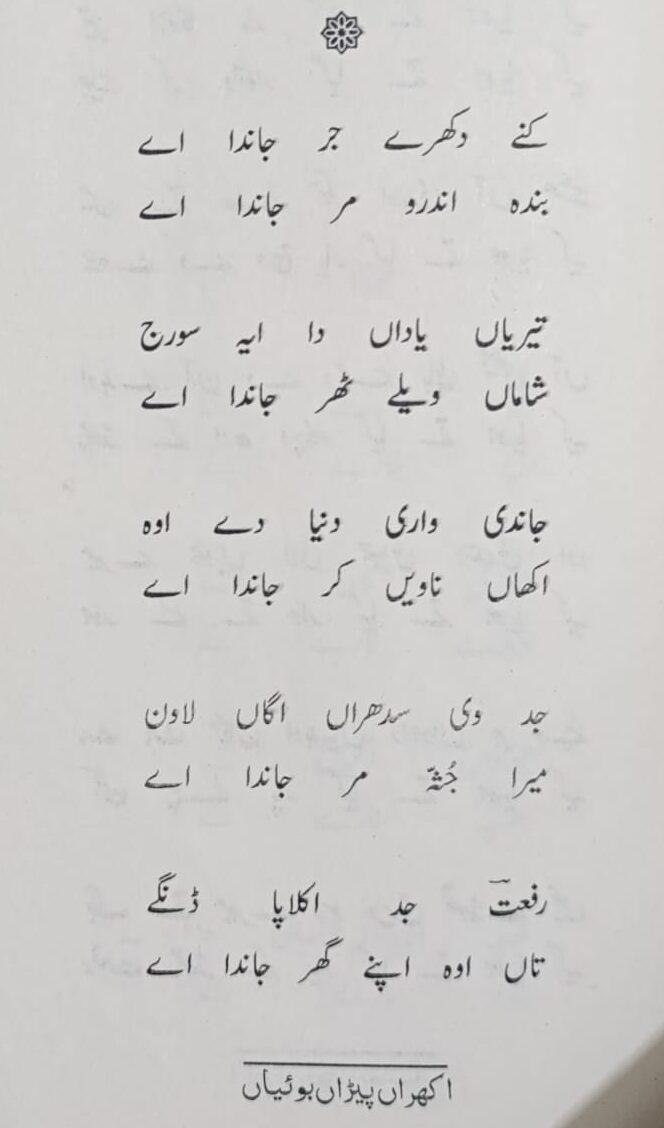 کنے دکھرے جر جاندا اے
بندہ اندرو مر جاندا اے
تیریاں یاداں دا ایہ سورج
شاماں ویلے ٹھر جاندا اے
جاندی واری دنیا دے اوہ
اکھاں ناویں کر جاندا اے
جد وی سدھراں اگاں لاون
میرا جُثہّ مر جاندا اے
رفعتؔ جد اکلاپا ڈنگے
تاں اوہ اپنے گھر جاندا اے
اکھراں پیڑاں بوئیاں